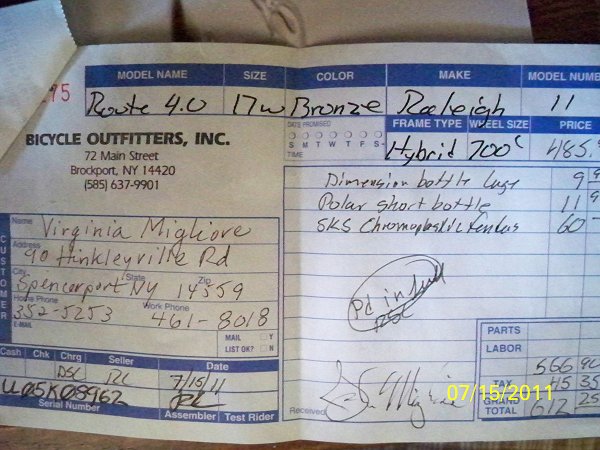 275
MODEL NAME SIZE COLOR MAKE MODEL NUMB
Route 4.0 17w Bronze Raleigh 11
BICYCLE OUTFITTERS, INC.
72 Main Street
Brockport, NY 14420
(585) 637-9901
DATE PROMISED
S M T W T F S
TIME
FRAME TYPE WHEEL SIZE PRICE
Hybrid 700c 485.
Dimension bottle cage 9
Polar short bottle 11
SKS Chromoplastic fenders 60
CUSTOMER
Name Virginia Migliore
Address 90 Hinkleyville Rd
City State Zip
Spencerport NY 14559
Home Phone Work Phone
352-5253 461-8018
E-MAIL
MAIL LIST OK? Y N
Pd in full
Cash Chk Chrg Seller Date
DSC 7/15/11
U05K08962
Serial Number Assembler Test Rider
Received
PARTS
LABOR
566 96
TAX 45 35
GRAND TOTAL 612 25
07/15/2011